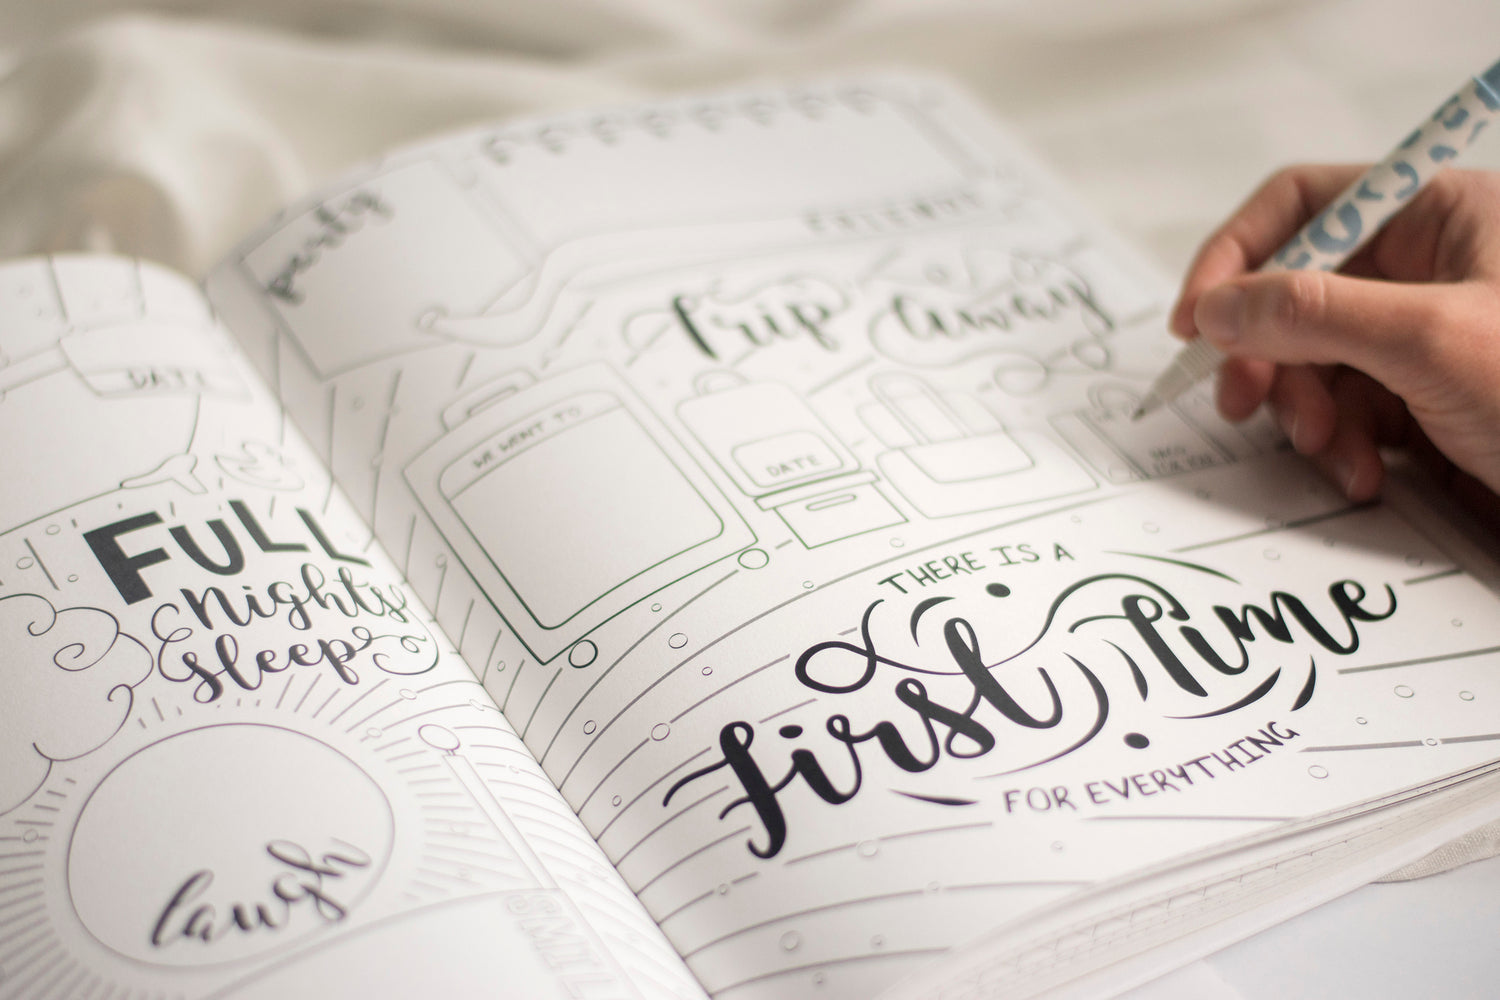 DATE
FULL
Nights
sleeps
laugh
SMIL
party
Trip away
WE WENT TO
DATE
THERE IS A
first time
FOR EVERYTHING